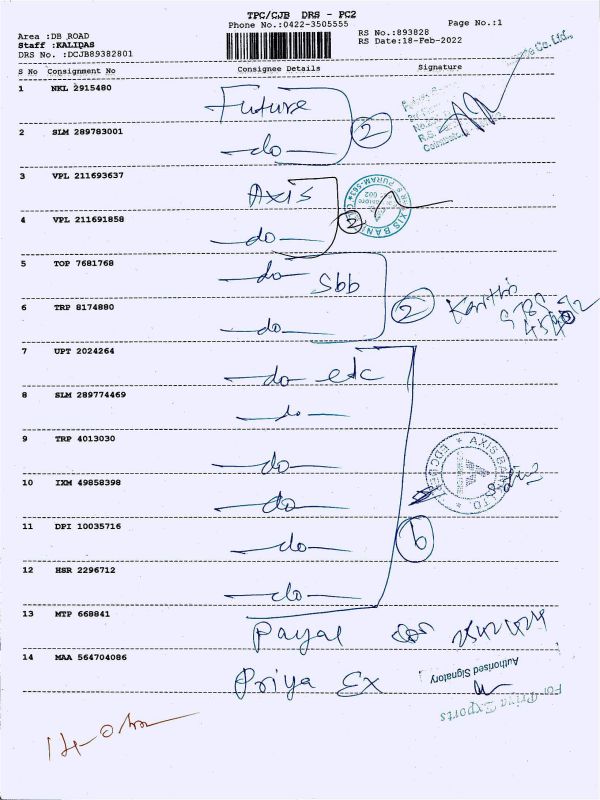 TPC/CJB DRS - PC2
Phone No.:0422-3505555
Page No.:1
Area :DB ROAD
Staff :KALIDAS
DRS No. :DCJB89382801
RS No.:893828
RS Date:18-Feb-2022
S No Consignment No Consignee Details Signature
1 NKL 2915480 Future
2 SLM 289783001 —do—
2
3 VPL 211693637 Axis
4 VPL 211691858 —do—
2
AXIS BANK
5 TOP 7681768 —do— Sbb
6 TRP 8174880 —do—
2
7 UPT 2024264 —do— edc
8 SLM 289774469 —do—
9 TRP 4013030 —do—
AXIS BANK LTD
10 IXM 49858398 —do—
11 DPI 10035716 —do—
6
12 HSR 2296712 —do—
13 MTP 668841 Payal
14 MAA 564704086 Priya Ex
Authorised Signatory
For Priya Exports